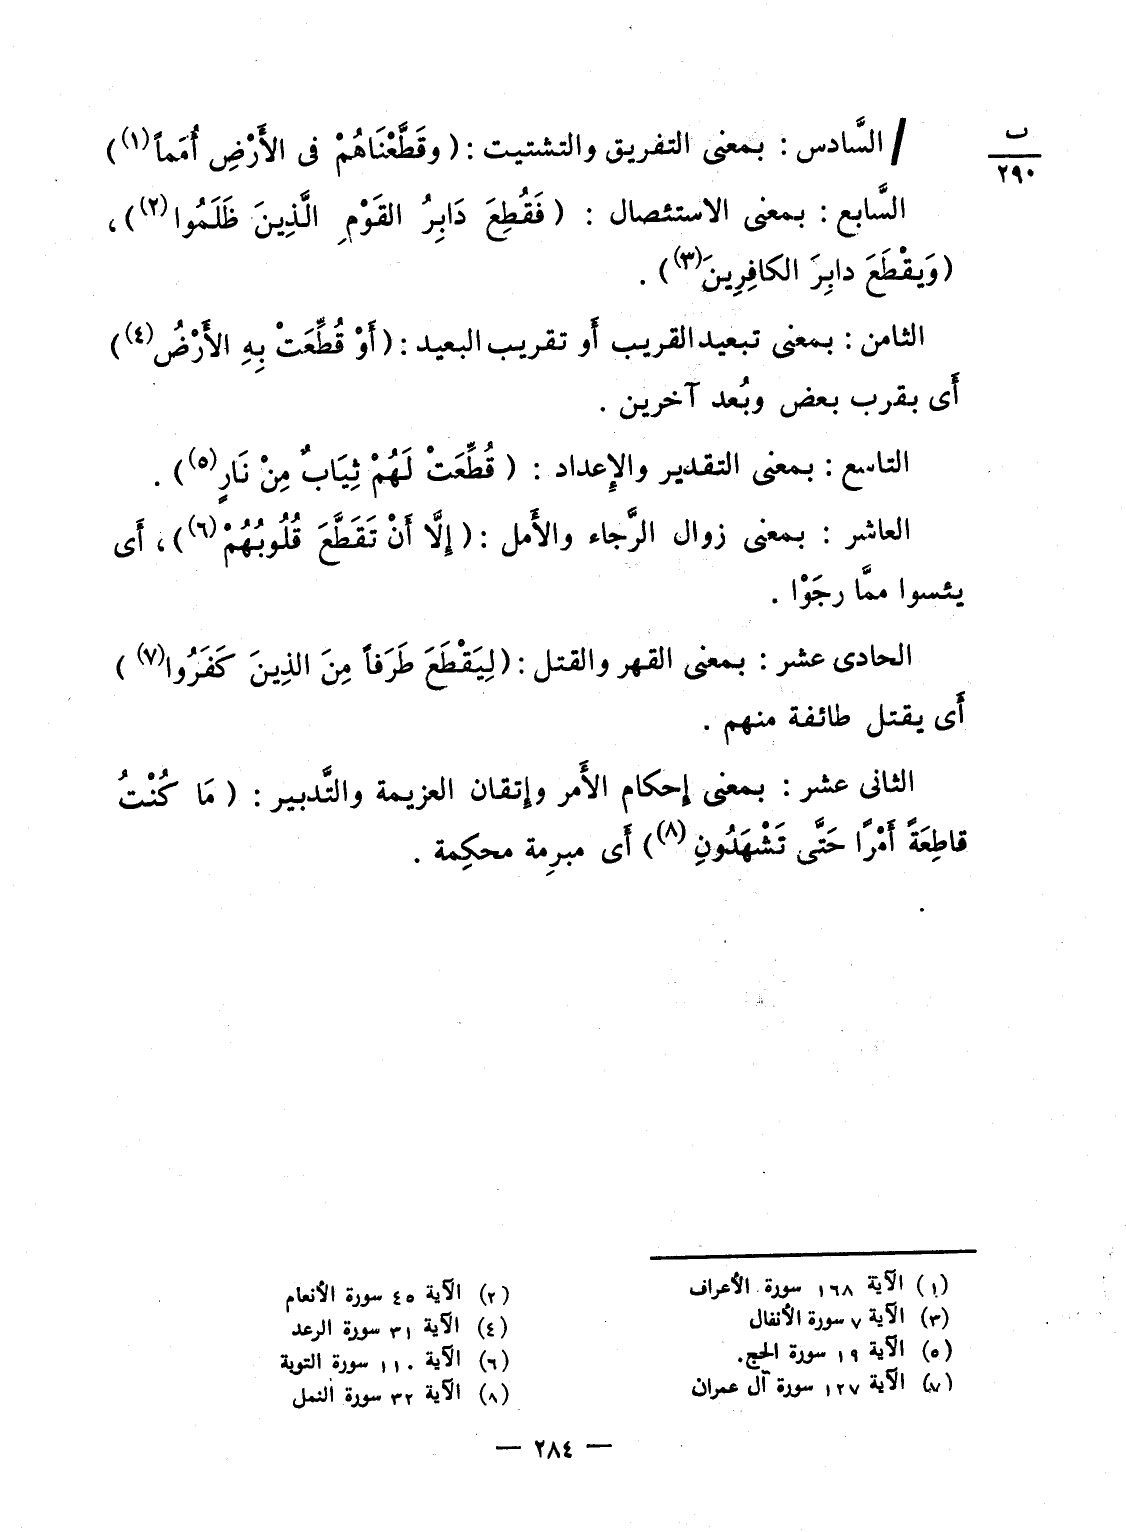 ب
٢٩٠
/ السَّادس : بمعنى التفريق والتشتيت : ( وقَطَّعْنَاهُمْ فى الأَرْضِ أُمَماً(١) )
السَّابع : بمعنى الاستئصال : ( فَقُطِعَ دَابِرُ القَوْمِ الَّذِينَ ظَلَمُوا(٢) ) ،
( وَيقْطَعَ دابِرَ الكافِرِينَ(٣) ) .
الثامن : بمعنى تبعيد القريب أَو تقريب البعيد : ( أَوْ قُطِّعَتْ بِهِ الأَرْضُ(٤) )
أَى بقرب بعض وبُعد آخرين .
التاسع : بمعنى التقدير والإِعداد : ( قُطِّعَتْ لَهُمْ ثِيَابٌ مِنْ نَارٍ(٥) ) .
العاشر : بمعنى زوال الرَّجاء والأَمل : ( إِلَّا أَنْ تَقَطَّعَ قُلُوبُهُمْ(٦) ) ، أَى
يئسوا ممَّا رجَوْا .
الحادى عشر : بمعنى القهر والقتل : ( لِيَقْطَعَ طَرَفاً مِنَ الذِينَ كَفَرُوا(٧) )
أَى يقتل طائفة منهم .
الثانى عشر : بمعنى إِحكام الأَمر وإِتقان العزيمة والتَّدبير : ( مَا كُنْتُ
قاطِعَةً أَمْرًا حَتَّى تَشْهَدُونِ(٨) ) أَى مبرِمة محكِمة .
(١) الآية ١٦٨ سورة الأعراف (٢) الآية ٤٥ سورة الأنعام
(٣) الآية ٧ سورة الأنفال (٤) الآية ٣١ سورة الرعد
(٥) الآية ١٩ سورة الحج. (٦) الآية ١١٠ سورة التوبة
(٧) الآية ١٢٧ سورة آل عمران (٨) الآية ٣٢ سورة النمل
— ٢٨٤ —